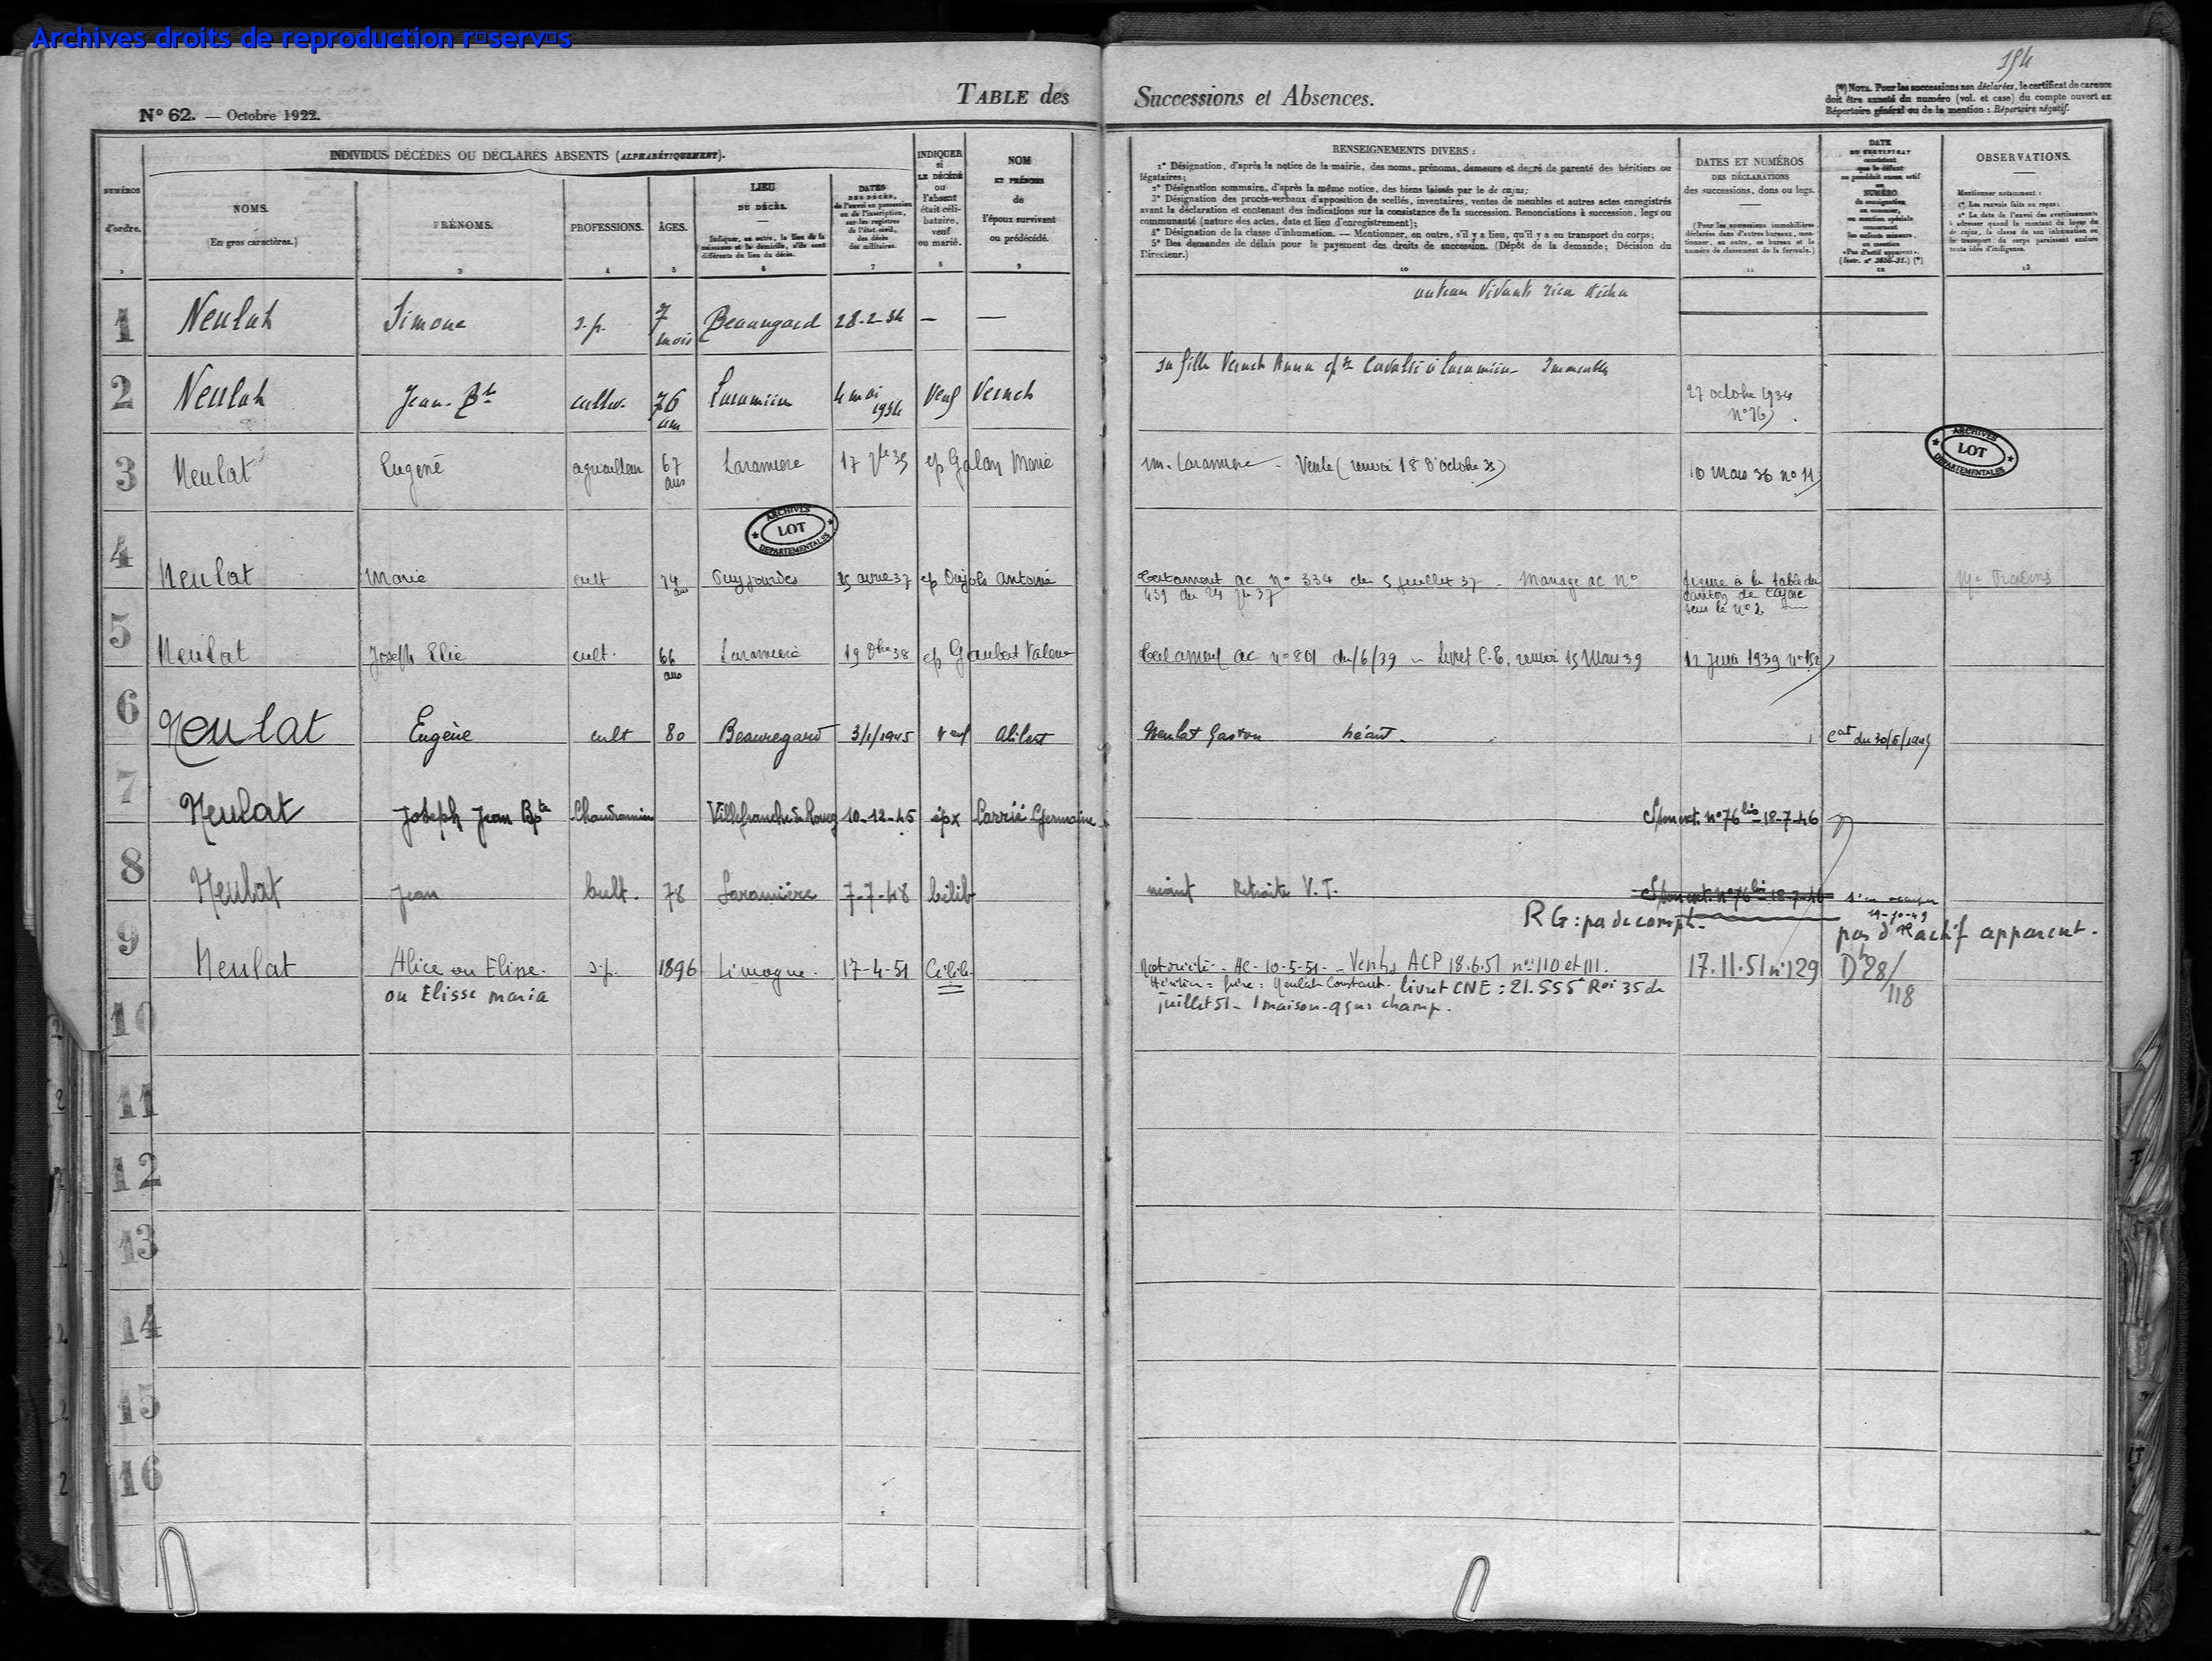 Archives droits de reproduction r▯serv▯s
194
N° 62. — Octobre 1922.
TABLE des Successions et Absences.
(*) NOTA. Pour les successions non déclarées, le certificat de carence
doit être annoté du numéro (vol. et case) du compte ouvert au
Répertoire général ou de la mention : Répertoire négatif.
NUMÉROS
d'ordre.
1
INDIVIDUS DÉCÉDÉS OU DÉCLARÉS ABSENTS (ALPHABÉTIQUEMENT).
NOMS.
(En gros caractères.)
PRÉNOMS.
3
PROFESSIONS.
4
ÂGES.
5
LIEU
DU DÉCÈS.
Indiquer, en outre, le lieu de la
naissance et le domicile, s'ils sont
différents du lieu du décès.
6
DATES
DES DÉCÈS,
de l'envoi en possession
ou de l'inscription,
sur les registres
de l'état civil,
des décès
des militaires.
7
INDIQUER
si
LE DÉCÉDÉ
ou
l'absent
était céli-
bataire,
veuf
ou marié.
8
NOM
ET PRÉNOMS
de
l'époux survivant
ou prédécédé.
9
RENSEIGNEMENTS DIVERS :
1° Désignation, d'après la notice de la mairie, des noms, prénoms, demeure et degré de parenté des héritiers ou
légataires;
2° Désignation sommaire, d'après la même notice, des biens laissés par le de cujus;
3° Désignation des procès-verbaux d'apposition de scellés, inventaires, ventes de meubles et autres actes enregistrés
avant la déclaration et contenant des indications sur la consistance de la succession. Renonciations à succession, legs ou
communauté (nature des actes, date et lieu d'enregistrement);
4° Désignation de la classe d'inhumation. — Mentionner, en outre, s'il y a lieu, qu'il y a eu transport du corps;
5° Des demandes de délais pour le payement des droits de succession. (Dépôt de la demande; Décision du
Directeur.)
10
DATES ET NUMÉROS
DES DÉCLARATIONS
des successions, dons ou legs.
(Pour les successions immobilières
déclarées dans d'autres bureaux, men-
tionner, en outre, ce bureau et le
numéro de classement de la formule.)
11
DATE
DU CERTIFICAT
constatant
que le défunt
ne possédait aucun actif
ou
NUMÉRO
de consignation
au sommier,
ou mention spéciale
concernant
les enfants mineurs,
ou mention
«Pas d'actif apparent».
(Instr. n° 3636-31.) (*)
12
OBSERVATIONS.
Mentionner notamment :
1° Les renvois faits ou reçus;
2° La date de l'envoi des avertissements
à adresser quand le montant du loyer du
de cujus, la classe de son inhumation ou
le transport du corps paraissent exclure
toute idée d'indigence.
13
1 Neulat Simone s.p. 7 mois Beauregard 28-2-34 — —
2 Neulat Jean-Bte cultiv. 76 ans Laramière 4 mai 1934 Veuf Vernch
sa fille Vernch Anna à Laramière Immeubles
27 octobre 1934
n° 76
3 Neulat Eugène agriculteur 67 ans Laramière 17 35 ep Galan Marie
im. Laramière - Vente (renvoi 18 d'octobre 35) 10 Mars 36 n° 11
ARCHIVES DÉPARTEMENTALES LOT
ARCHIVES DÉPARTEMENTALES LOT
4 Neulat Marie cult 74 ans Puyjourdes 25 avril 37 ep Antoine
Testament ac n° 334 du 5 juillet 37 - Mariage ac n°
459 du 24 37
figure à la table du
canton de Cajarc
sous le n° 2
5 Neulat Joseph Elie cult. 66 ans Laramière 19 38 ep Gaubert
Testament ac n° 801 du /6/39 - Livret C.E, renvoi 15 Mars 39 12 Juin 1939 n° 152
6 Neulat Eugène cult 80 Beauregard 3/1/1945 veuf Alibert
Neulat Gaston néant. Cat du 30/6/1945
7 Neulat Joseph Jean Bpte Chaudronnier Villefranche de Rouerg 10-12-45 épx Carrié Germaine
n° 76 bis - 18-7-46
8 Neulat Jean Cult. 78 Laramière 7-7-48 Célib
néant Retraite V.T. n° 76 bis 18-7-46
19-10-49
RG : pas de compt.
pas d'actif apparent.
9 Neulat Alice ou Elise s.p. 1896 Limogne 17-4-51 Célib
ou Elisse Maria
Notoriété - AC - 10-5-51 - Ventes ACP 18.6.51 nos 110 et 111. 17.11.51 n° 129 D 28/118
Héritier = frère : Neulat Constant. livret CNE : 21.555 Roi 35 de
juillet 51 - 1 maison - champ.
10
11
12
13
14
15
16